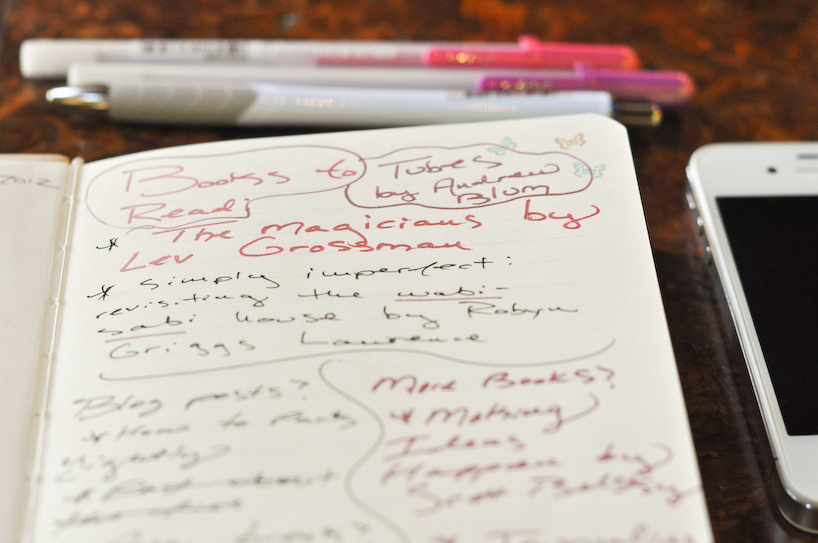 2012
Books to
Read:
Tubes
by Andrew
Blum
* The Magicians by
Lev Grossman
* Simply imperfect:
revisiting the wabi-
sabi house by Robyn
Griggs Lawrence
Blog posts?
* How to Pack
Lightly
More Books?
* Making
Ideas
Happen by
Scott Belsky